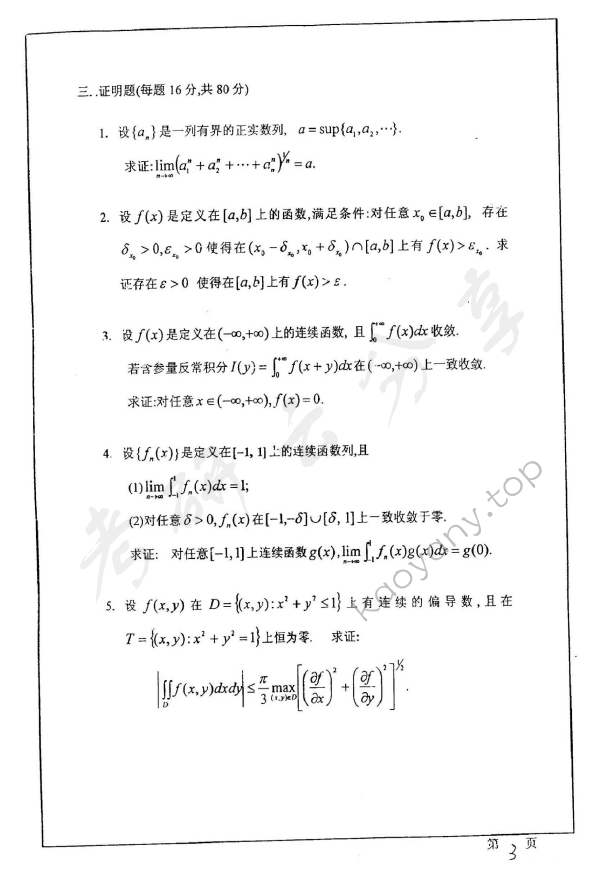 三. .证明题(每题 16 分,共 80 分)
1. 设{aₙ}是一列有界的正实数列, a = sup{a₁,a₂,⋯}.
求证:lim_{n→∞}(a₁ⁿ + a₂ⁿ + ⋯ + aₙⁿ)^{1/n} = a.
2. 设 f(x) 是定义在[a,b] 上的函数,满足条件:对任意 x₀ ∈[a,b], 存在
δ_{x₀} > 0,ε_{x₀} > 0 使得在(x₀ − δ_{x₀},x₀ + δ_{x₀})∩[a,b]上有 f(x) > ε_{x₀}. 求
证存在 ε > 0 使得在[a,b]上有 f(x) > ε.
3. 设 f(x) 是定义在(−∞,+∞)上的连续函数, 且∫₀^{+∞} f(x)dx 收敛.
若含参量反常积分 I(y) = ∫₀^{+∞} f(x + y)dx 在(−∞,+∞) 上一致收敛.
求证:对任意 x ∈(−∞,+∞), f(x) = 0.
4. 设{fₙ(x)}是定义在[−1, 1]上的连续函数列,且
(1) lim_{n→∞} ∫₋₁¹ fₙ(x)dx = 1;
(2)对任意δ > 0, fₙ(x)在[−1,−δ]∪[δ, 1]上一致收敛于零.
求证: 对任意[−1,1]上连续函数 g(x), lim_{n→∞} ∫₋₁¹ fₙ(x)g(x)dx = g(0).
5. 设 f(x,y) 在 D = {(x,y): x² + y² ≤ 1} 上有连续的偏导数, 且在
T = {(x,y): x² + y² = 1}上恒为零. 求证:
|∬_D f(x,y)dxdy| ≤ π/3 max_{(x,y)∈D} [(∂f/∂x)² + (∂f/∂y)²]^{1/2}.
第 3 页
考研云分享
kaoyany.top